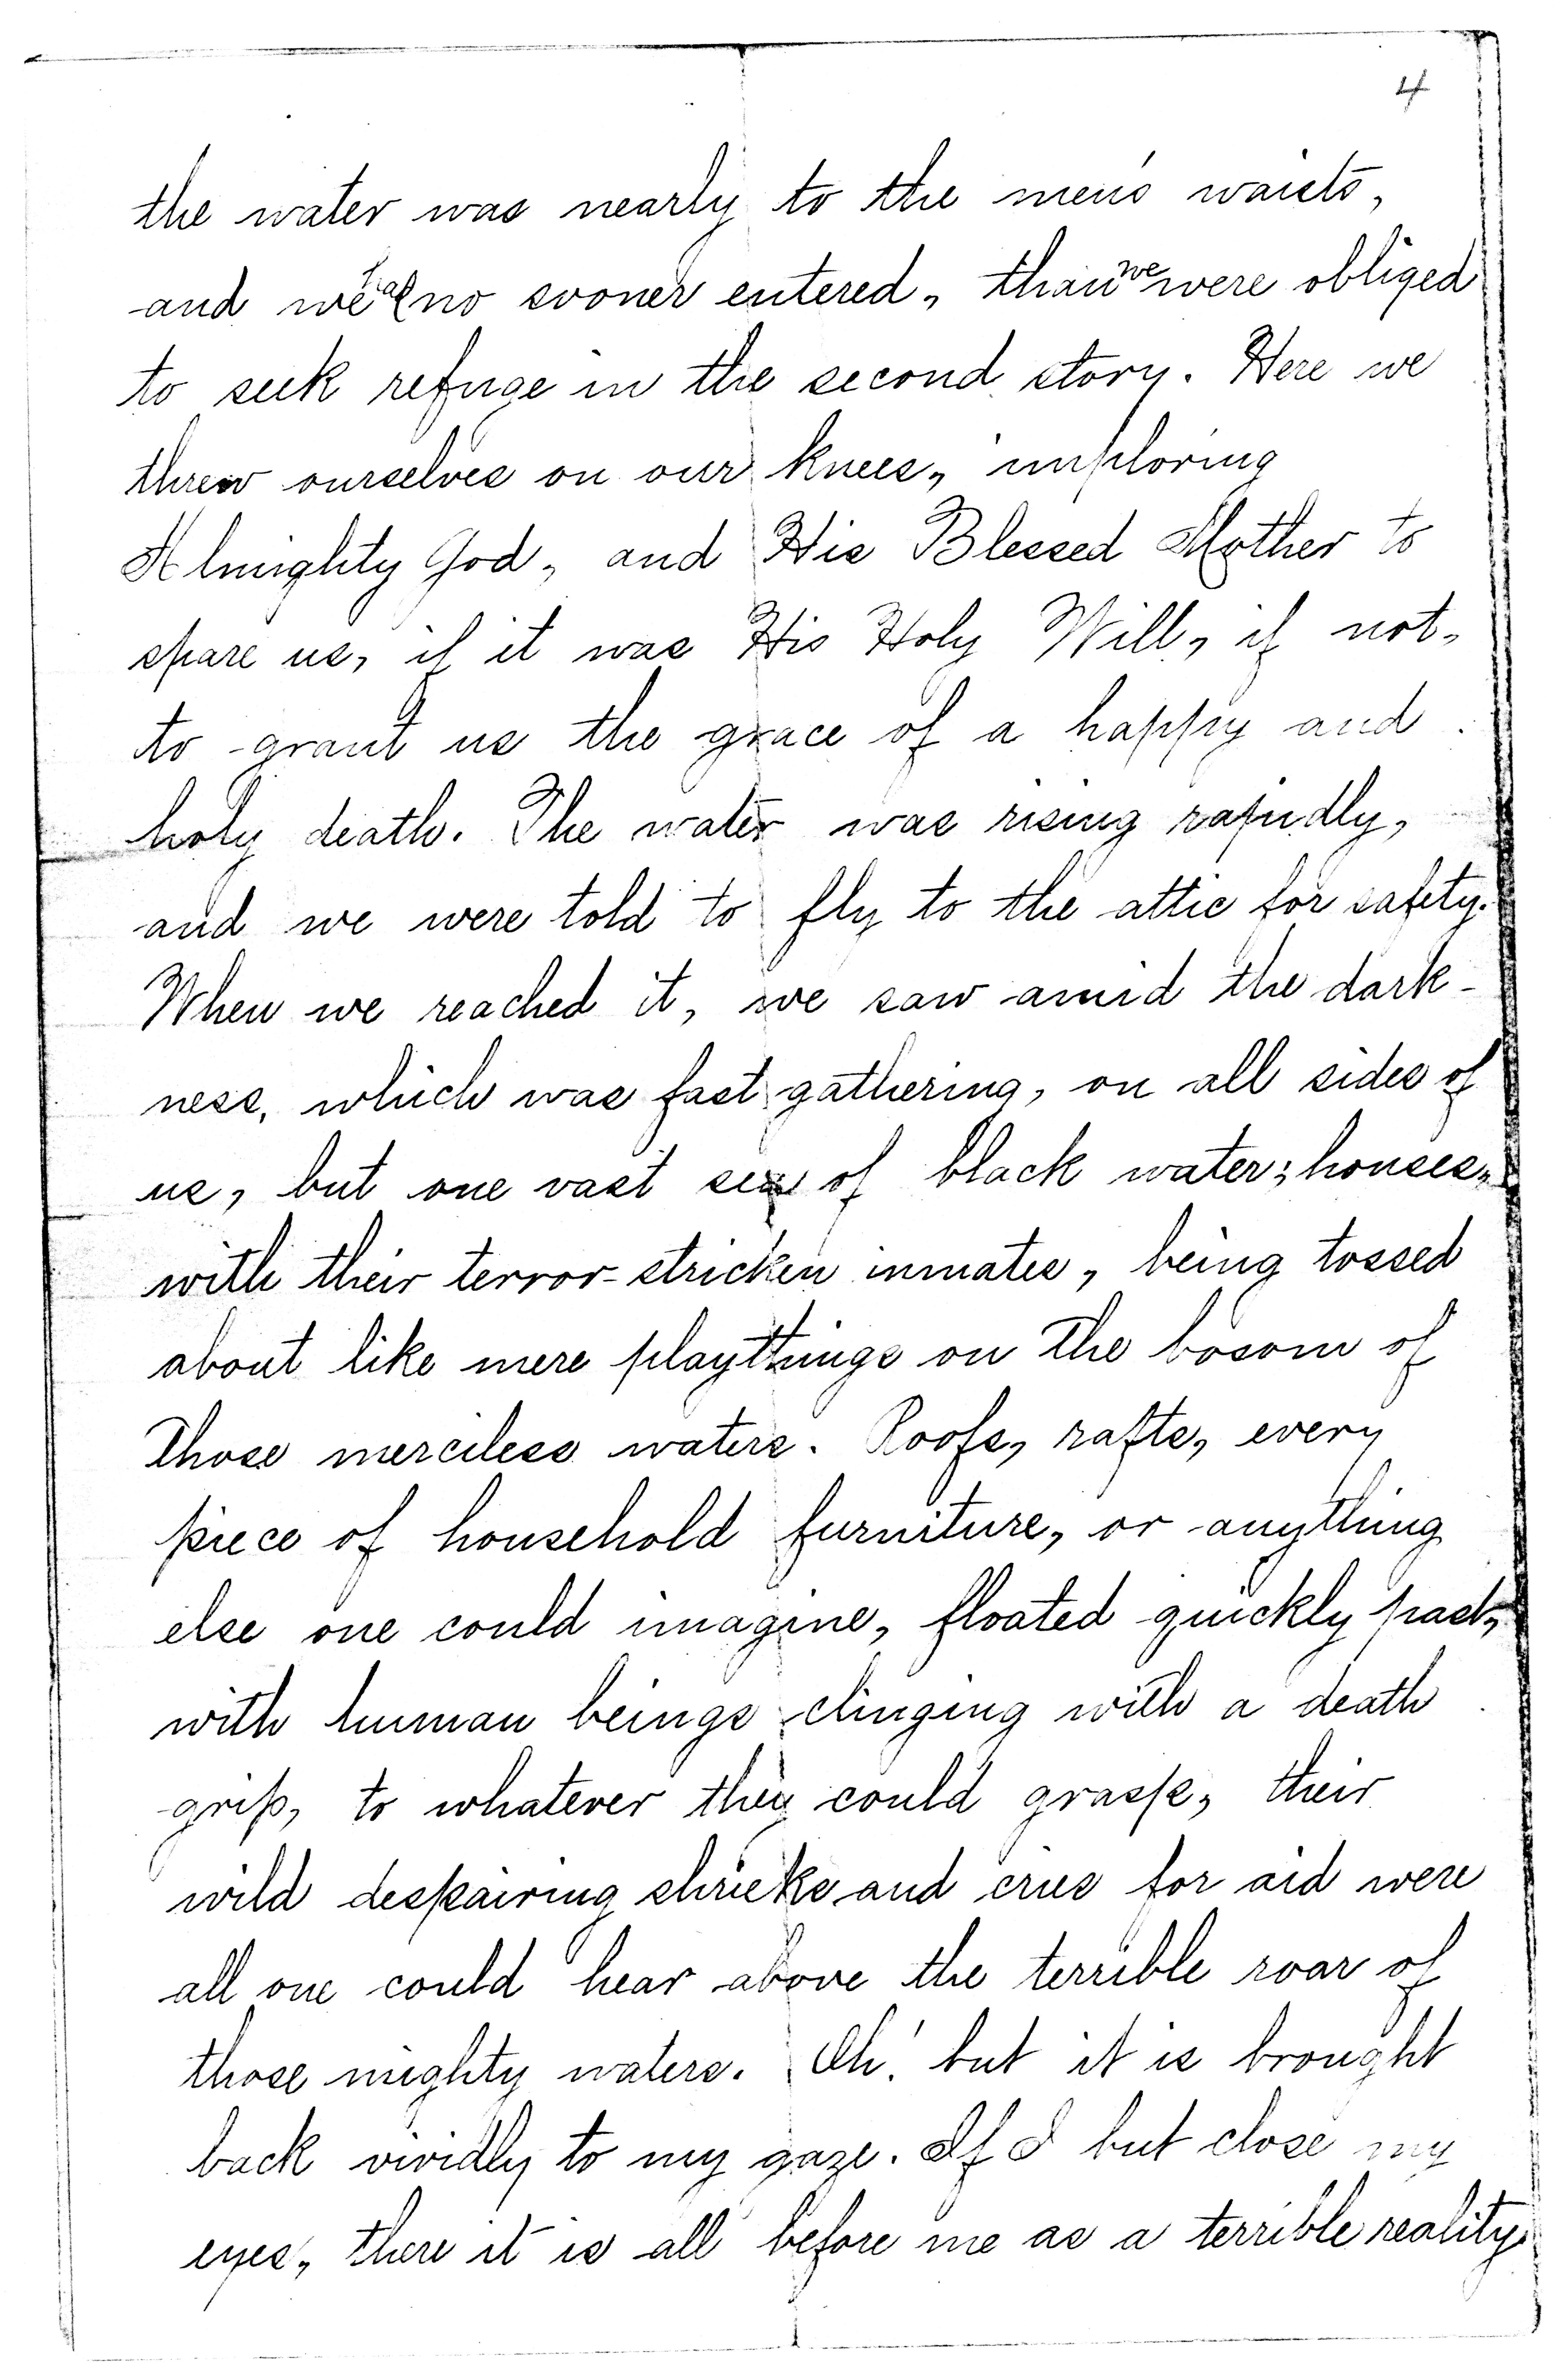 4
the water was nearly to the men's waists,
and we had no sooner entered, than we were obliged
to seek refuge in the second story. Here we
threw ourselves on our knees, imploring
Almighty God, and His Blessed Mother to
spare us, if it was His Holy Will, if not,
to grant us the grace of a happy and
holy death. The water was rising rapidly,
and we were told to fly to the attic for safety.
When we reached it, we saw amid the dark-
ness, which was fast gathering, on all sides of
us, but one vast sea of black water; houses,
with their terror-stricken inmates, being tossed
about like mere playthings on the bosom of
those merciless waters. Roofs, rafts, every
piece of household furniture, or anything
else one could imagine, floated quickly past,
with human beings clinging with a death
grip, to whatever they could grasp, their
wild despairing shrieks and cries for aid were
all one could hear above the terrible roar of
those mighty waters. Oh! but it is brought
back vividly to my gaze. If I but close my
eyes, there it is all before me as a terrible reality.